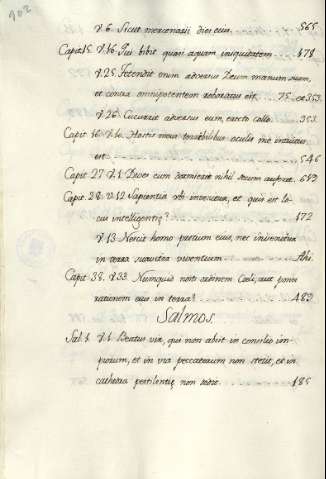 902
V. 6. Sicut mercenarii dies eius. 565
Capit. 15. V. 16. Qui bibit quasi aquam iniquitatem. 478
V. 25. Tetendit enim adversus Deum manum suam,
et contra omnipotentem roboratus est. 75. et 353.
V. 26. Cucurrit adversus eum, erecto collo. 353.
Capit. 16. V. 10. Hostis meus terribilibus oculis me intuitus
est 546
Capit. 27. V. 19. Dives cum dormierit nihil secum auferet.
Capit. 28. V. 12 Sapientia ubi invenitur, et quis est lo-
cus intelligentię? 172
V. 13. Nescit homo pretium eius, nec invenitur
in terra suaviter viventium Ibi.
Capit. 38. V. 33. Numquid nosti ordinem Cœli, aut pones
rationem eius in terra? 483
Salmos.
Sal. 1. V. 1. Beatus vir, qui non abiit in consilio im-
piorum, et in via peccatorum non stetit, et in
cathedra pestilentię non sedit. 185